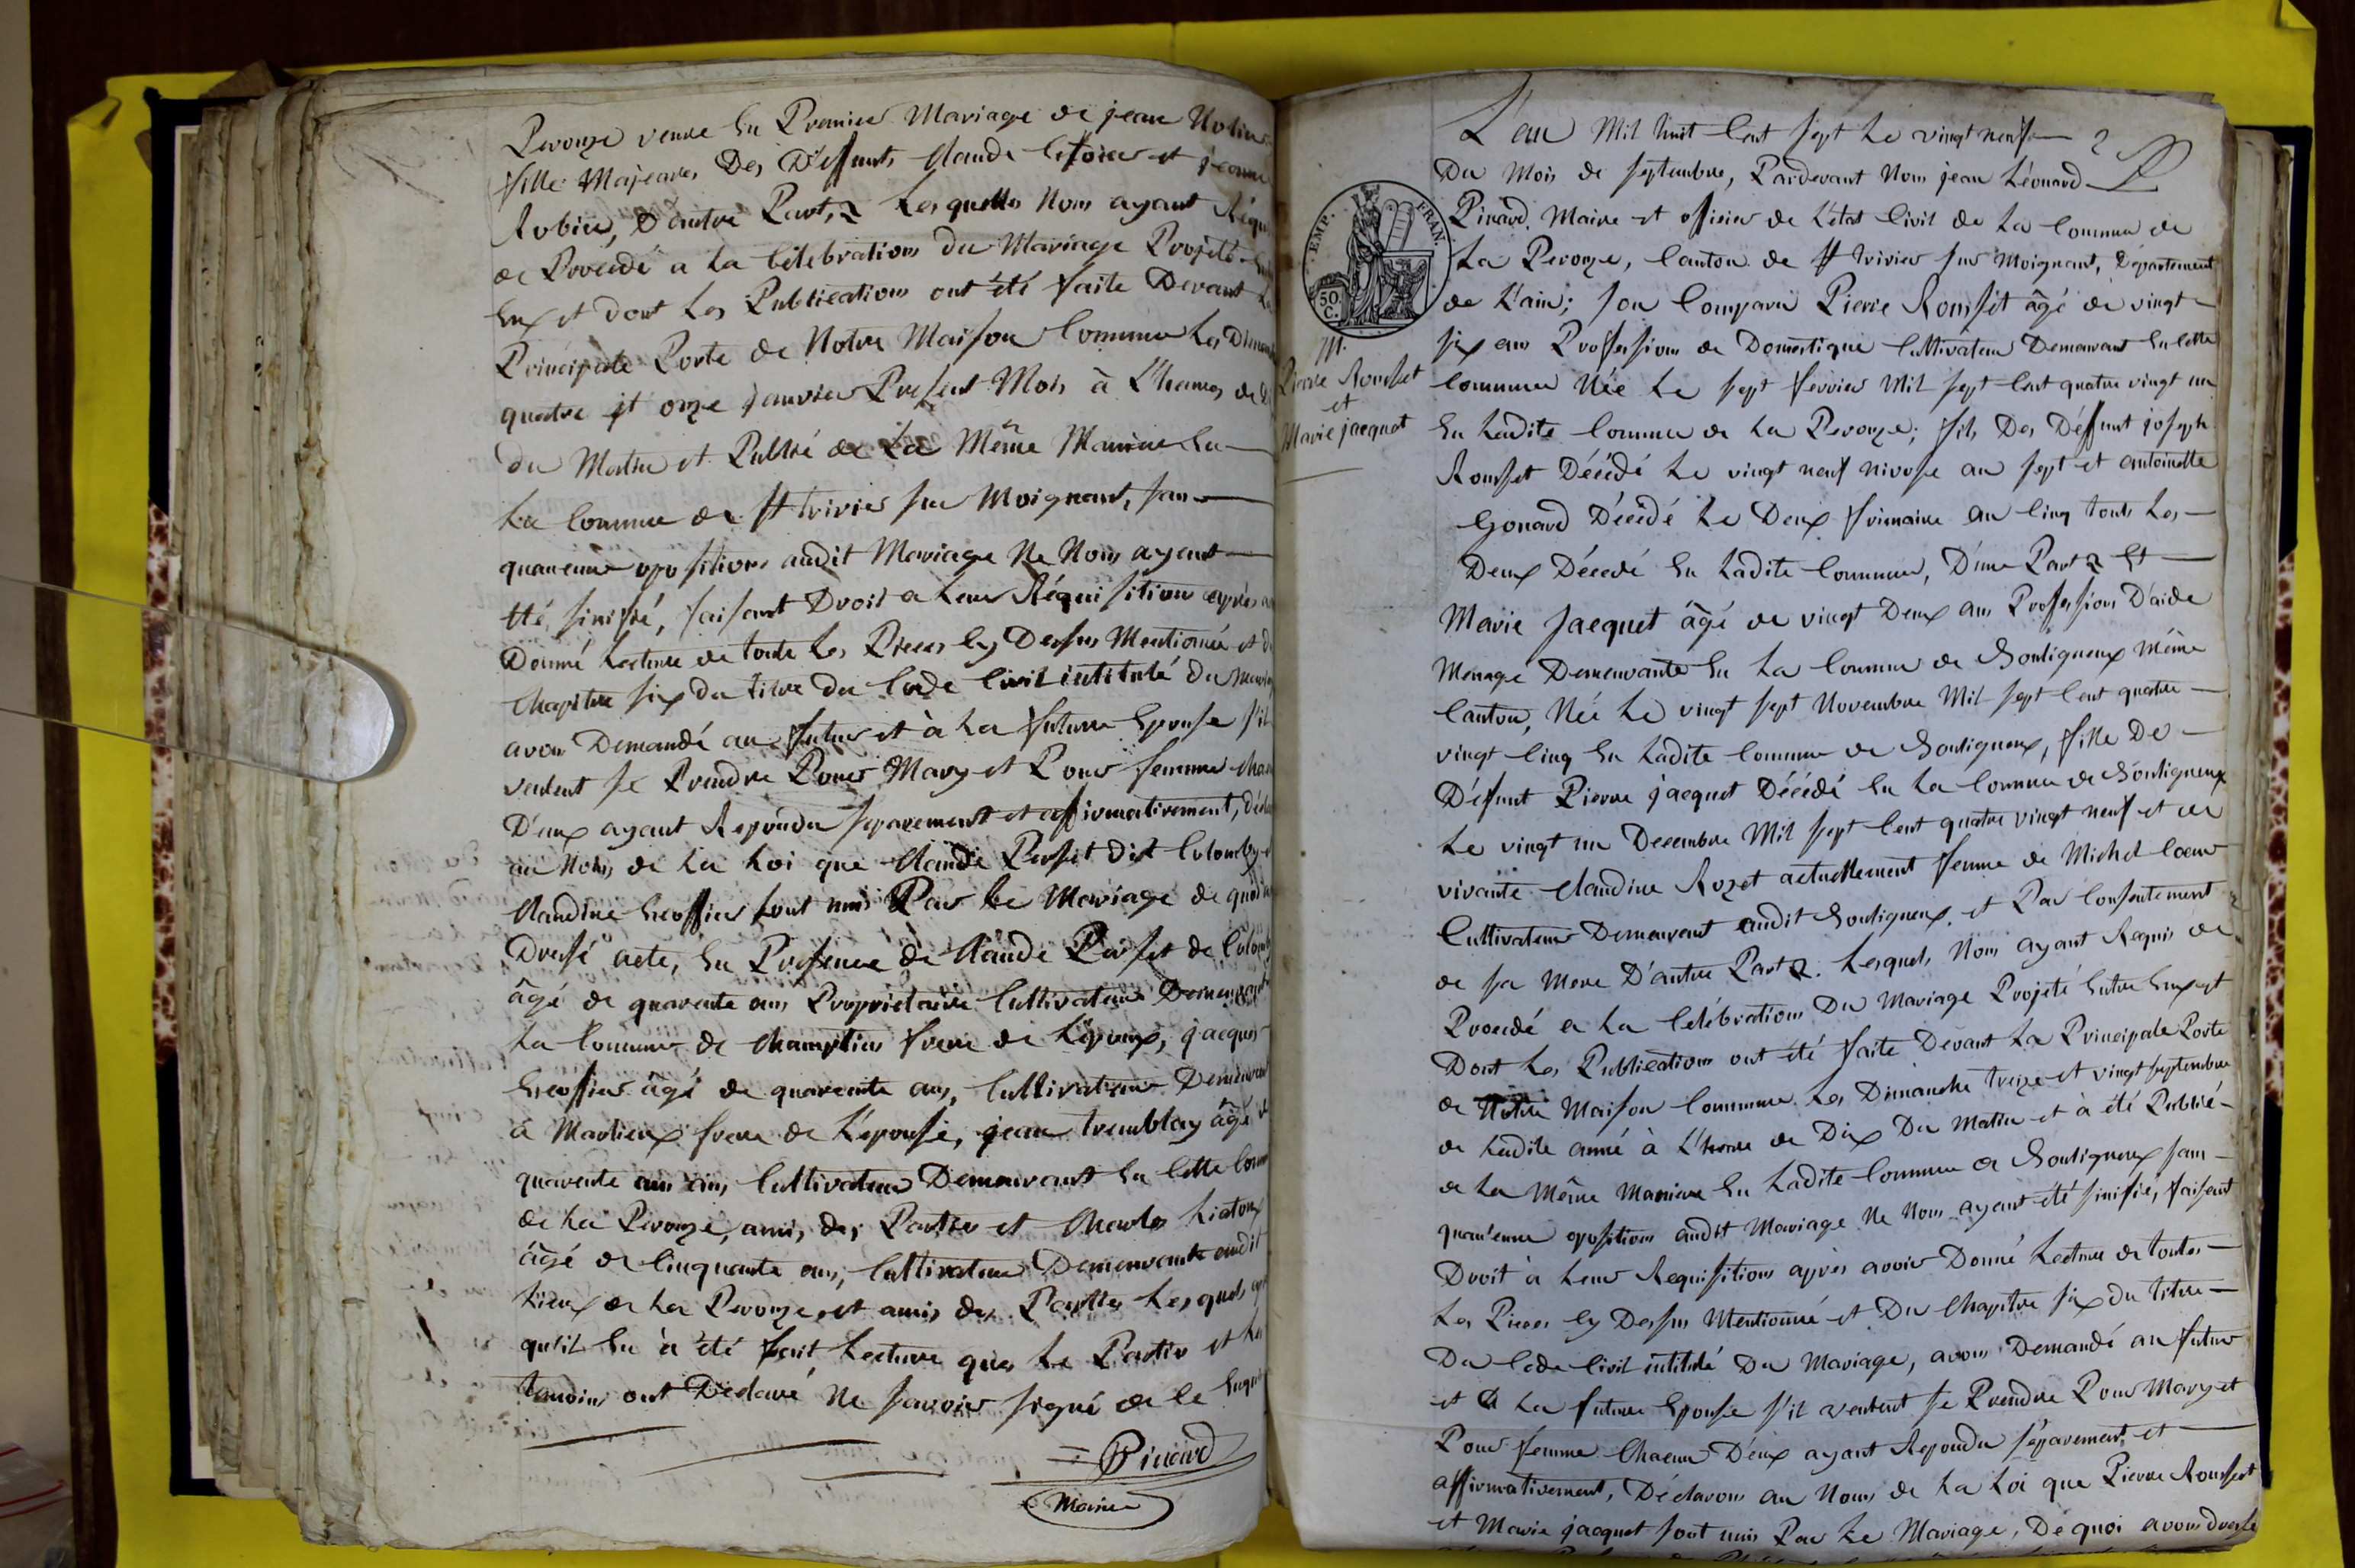 Perouze veuve En Premier Mariage de jean
fille Majeure, Des Deffunts Claude et jeanne
Robin, D'autre Part, Lesquelles Nous ayant
de Procedé a La Célébration du Mariage Projeté
Eux et dont Les Publications ont été faite Devant
Principale Porte de Notre Maison Commune Les
quatre et onze janvier Present Mois à L'heures de
du Matin et Publié de La Même Maniere En
La Commune de St trivier sur Moignant, san
qu'aucune opositions audit Mariage Ne Nous ayant
été sinifié, faisant Droit a Leur Réquisition après
Donné Lecture de toute Les Pieces Cy Dessus Mentionée et
Chapitre six du titre du Code Civil intitulé du
avons Demandé au futur et à La future Epouse s'il
veulent se Prendre Pour Mary et Pour femme
D'eux ayant Repondu separement et affirmativement,
au Nom de La Loi que Claude Perset dit Colomby
Claudine sont unis Par Le Mariage de quoi
Dressé acte, En Presence de Claude Perset de
âgé de quarente ans Propriétaire Cultivateur
La Commune de frere de L'Epoux, jacques
âgé de quarente ans, Cultivateur
à Marlieux frere de L'epouse, jean tremblay âgé
quarente ans, Cultivateur Demeurant En Cette
de La Perouze, amis des Partie et Charles
âgé de Cinquante ans, Cultivateur Demeurant audit
Lieux de La Perouze, et amis des Parties Lesquels
qu'il En à été fait Lecture que Le Partie et
temoin ont Declaré Ne savoir signé de Ce
Pinard
Maire
L'an Mil huit Cent sept Le vingt neuf
Du Mois de septembre, Pardevant Nous jean Léonard
EMP. FRAN.
50. C.
Pinard. Maire et officier de L'etat Civil de La Commune de
La Perouze, Canton de St trivier sur Moignant, Département
de L'ain; son Comparu Pierre Rousset âgé de vingt
six ans Profession de Domestique Cultivateur Demeurant En Cette
M.
Pierre Rousset
et
Marie jacquet
Commune Née Le sept fevrier Mil sept Cent quatre vingt un
En Ladite Commune de La Perouze; fils Des Déffunt joseph
Rousset Décédé Le vingt neuf nivose an sept et antoinette
Gonard Décédé Le Deux frimaire an Cinq touts Les
Deux Décedé En Ladite Commune, D'une Part Et
Marie Jacquet âgé de vingt Deux ans Profession D'aide
Menage Demeurante En La Commune de Bouligneux même
Canton, Née Le vingt sept Novembre Mil sept Cent quatre
vingt Cinq En Ladite Commune de Bouligneux, fille De
Défunt Pierre jacquet Décédé En La Commune de Bouligneux
Le vingt un Decembre Mil sept Cent quatre vingt neuf et de
vivante Claudine Rozet actuellement femme de Michel Coeur
Cultivateur Demeurant audit Bouligneux, et Par Consentement
de sa Mere D'autre Part. Lesquels Nous ayant Requis de
Procedé a La Célébration Du Mariage Projeté Entre Eux et
Dont Les Publications ont été faite Devant La Principale Porte
de Notre Maison Commune Les Dimanche treize et vingt septembre
de Ladite anné à L'heure de Dix Du Matin et à été Publié
de La Même Maniere En Ladite Commune de Bouligneux san
qu'aucune opositions audit Mariage Ne Nous ayant été sinifié, faisant
Droit à Leur Requisitions après avoir Donné Lecture de toutes
Les Pieces Cy Dessus Mentionné et Du Chapitre six du titre
Du Code Civil intitulé Du Mariage, avons Demandé au futur
et à La future Epouse s'il veulent se Prendre Pour Mary et
Pour femme Chacun D'eux ayant Repondu séparement, et
affirmativement, Déclarons au Nom de La Loi que Pierre Rousset
et Marie jacquet sont unis Par Le Mariage, De quoi avons dressé